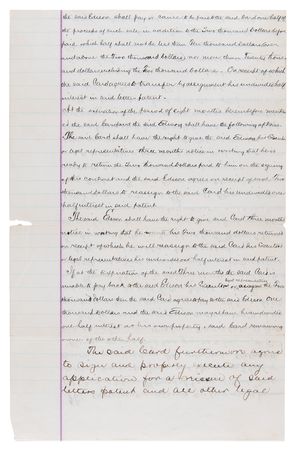 the said Edison shall pay or cause to be paid to the said Card one half of
the proceeds of such sale in addition to the Two thousand dollars before
paid, which shall not be less than Ten thousand dollars
and above the Two thousand dollars, nor more than Twenty thous
and dollars including the Two thousand dollars. On receipt of which
the said Card agrees to transfer by assignment his undivided half
interest in said letters patent.
At the expiration of the period of eight months herein before mention
ed the said Card and the said Edison shall have the following options:
The said Card shall have the right to give the said Edison his Execu
or legal representatives three months notice in writing that he is
ready to return the Two thousand dollars paid to him on the signing
of this contract and the said Edison agrees on receipt of said Two
thousand dollars to reassign to the said Card his undivided one
half interest in said patent.
The said Edison shall have the right to give said Card three months
notice in writing that he wants his Two thousand dollars returned
on receipt of which he will reassign to the said Card his Executors
or legal representatives his undivided one half interest in said patent.
If at the expiration of the said three months the said Card is
legal representatives
unable to pay back to the said Edison his Executors or assigns the Two
thousand dollars then the said Card agrees to pay to the said Edison One
thousand dollars and the said Edison may retain his undivided
one half interest as his own property, said Card remaining
owner of the other half.
The said Card furthermore agrees
to sign and properly execute any
application for a reissue of said
letters patent and all other legal